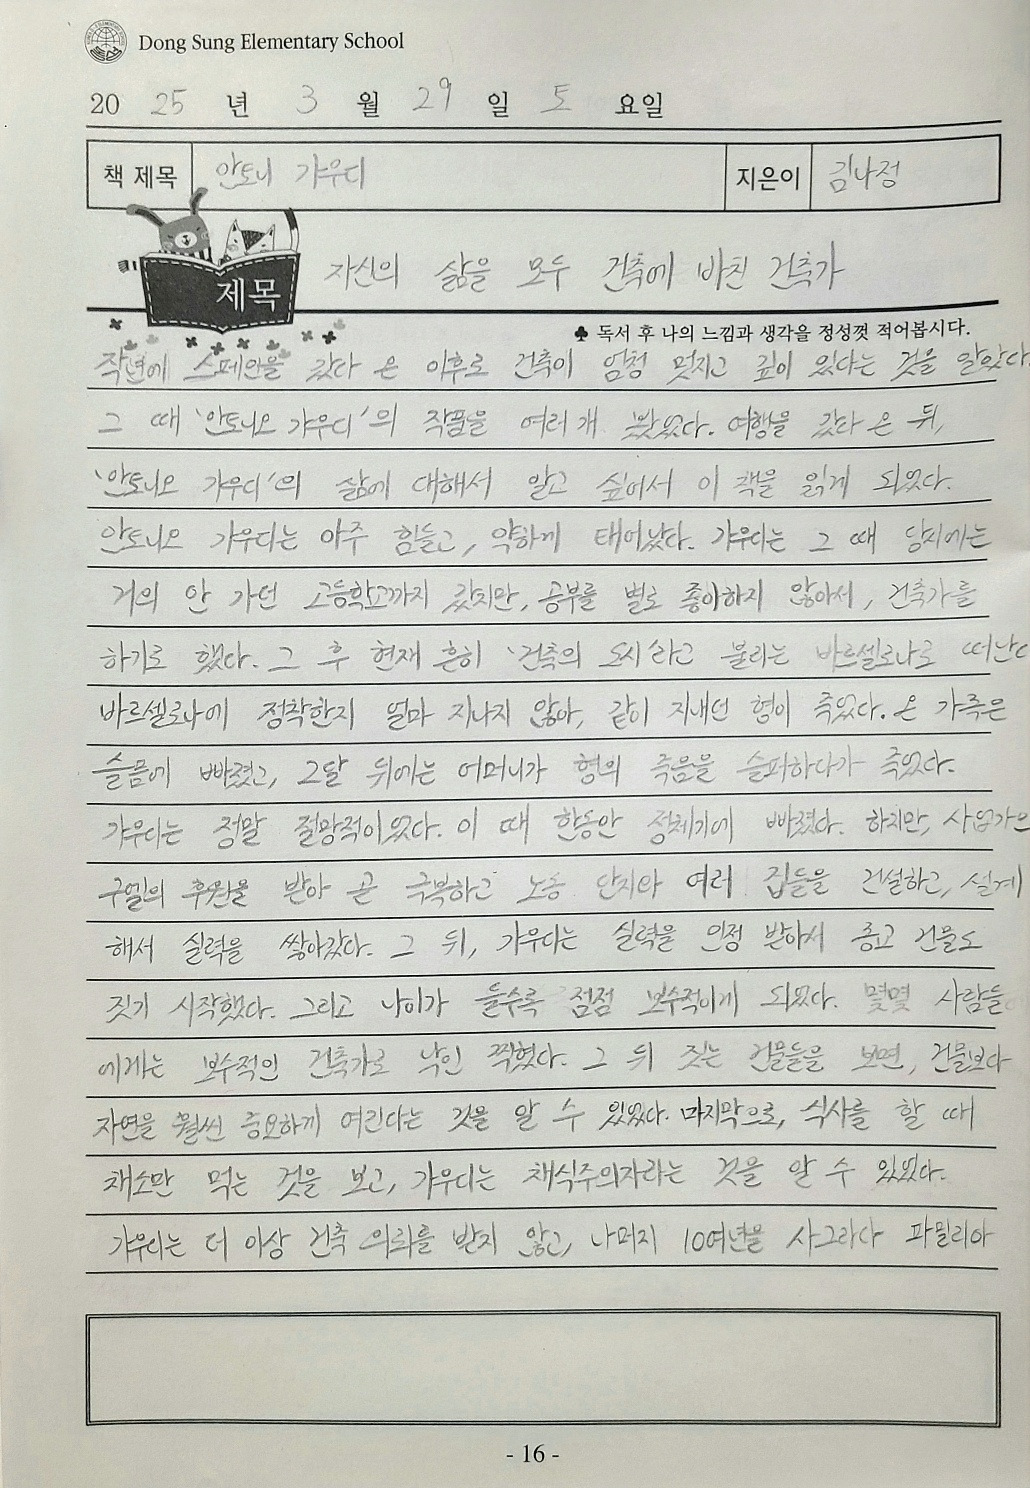 Dong Sung Elementary School
20 25 년 3 월 29 일 토 요일
책 제목 안토니 가우디 지은이 김나정
제목 자신의 삶을 모두 건축에 바친 건축가
♣ 독서 후 나의 느낌과 생각을 정성껏 적어봅시다.
작년에 스페인을 갔다 온 이후로 건축이 엄청 멋지고 깊이 있다는 것을 알았다.
그 때 '안토니오 가우디'의 작품을 여러 개 봤었다. 여행을 갔다 온 뒤,
'안토니오 가우디'의 삶에 대해서 알고 싶어서 이 책을 읽게 되었다.
안토니오 가우디는 아주 힘들고, 약하게 태어났다. 가우디는 그 때 당시에는
거의 안 가던 고등학교까지 갔지만, 공부를 별로 좋아하지 않아서, 건축가를
하기로 했다. 그 후 현재 흔히 '건축의 도시'라고 불리는 바르셀로나로 떠난다
바르셀로나에 정착한지 얼마 지나지 않아, 같이 지내던 형이 죽었다. 온 가족은
슬픔에 빠졌고, 2달 뒤에는 어머니가 형의 죽음을 슬퍼하다가 죽었다.
가우디는 정말 절망적이었다. 이 때 한동안 정체기에 빠졌다. 하지만, 사업가인
구엘의 후원을 받아 곧 극복하고 노동 단지와 여러 집들을 건설하고, 설계
해서 실력을 쌓아갔다. 그 뒤, 가우디는 실력을 인정 받아서 종교 건물도
짓기 시작했다. 그리고 나이가 들수록 점점 보수적이게 되었다. 몇몇 사람들
에게는 보수적인 건축가로 낙인 찍혔다. 그 뒤 짓는 건물들을 보면, 건물보다
자연을 훨씬 중요하게 여긴다는 것을 알 수 있었다. 마지막으로, 식사를 할 때
채소만 먹는 것을 보고, 가우디는 채식주의자라는 것을 알 수 있었다.
가우디는 더 이상 건축 의뢰를 받지 않고, 나머지 10여년을 사그라다 파밀리아
- 16 -